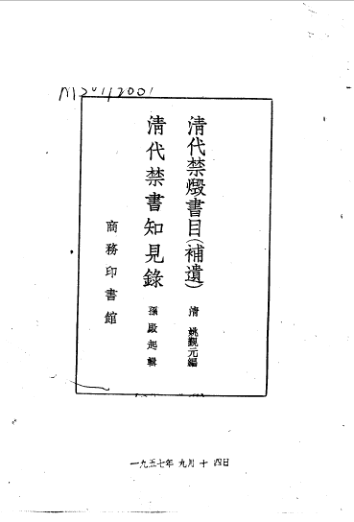 清代禁燬書目(補遺)
清 姚覲元編
清代禁書知見錄
孫殿起輯
商務印書館
一九五七年九月十四日